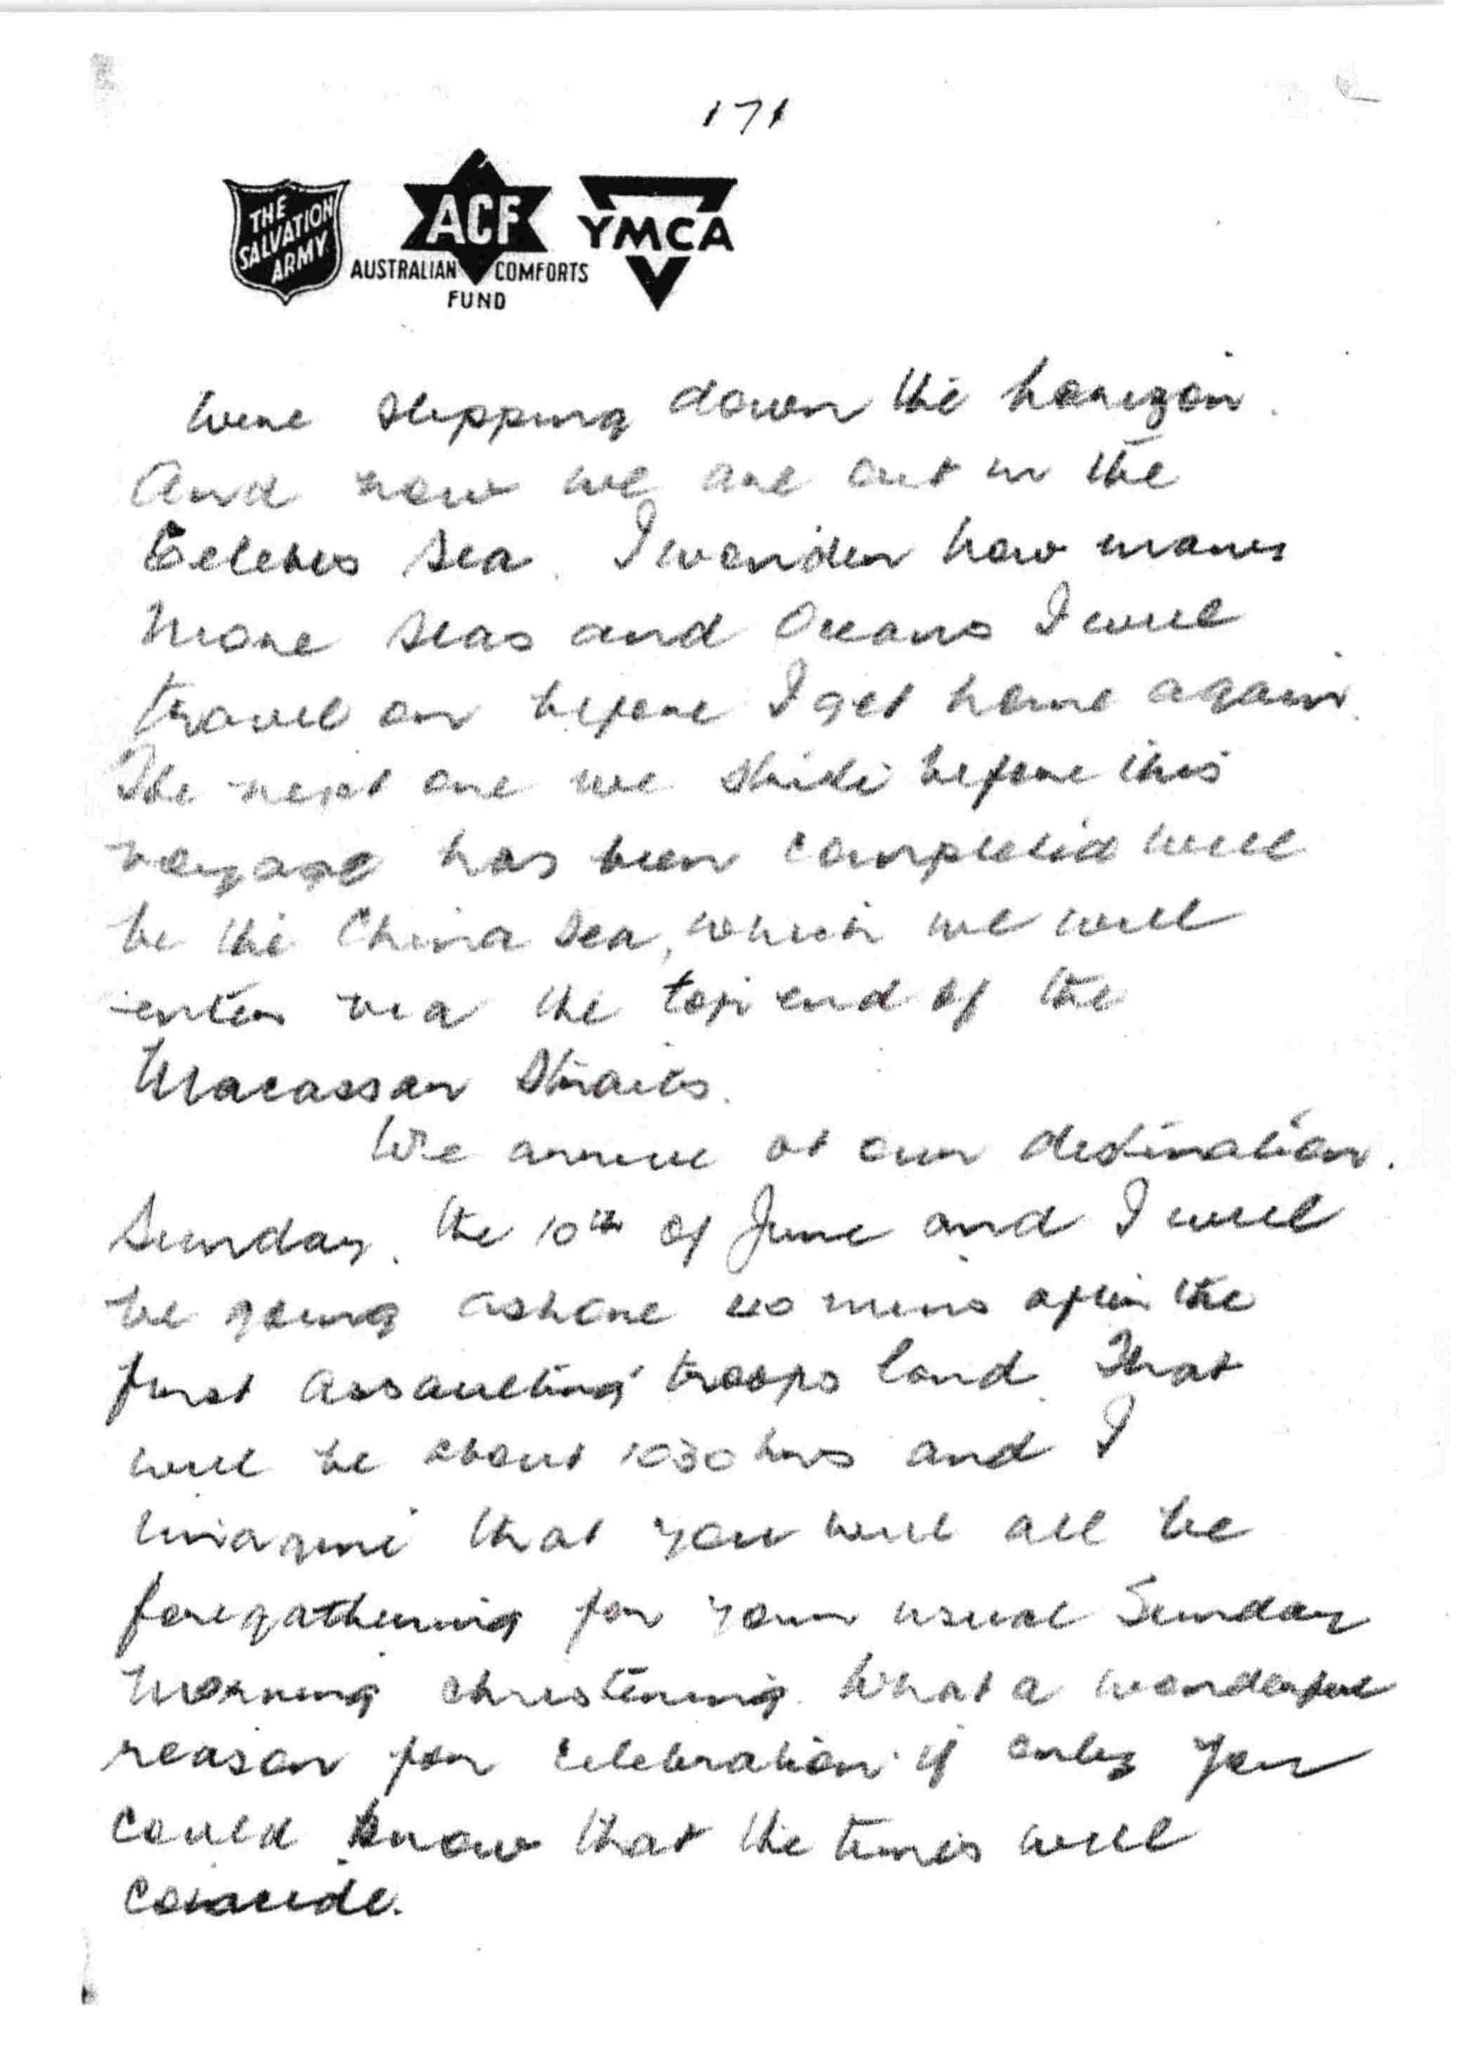 171
THE
SALVATION
ARMY
ACF
AUSTRALIAN COMFORTS
FUND
YMCA
were slipping down the horizon.
And now we are out in the
Celebes Sea. I wonder how many
more seas and Oceans I will
travel on before I get home again.
The next one we strike before this
voyage has been completed will
be the China Sea, which we will
enter via the top end of the
Macassar Straits.
We arrive at our destination.
Sunday. the 10th of June and I will
be going ashore 40 mins after the
first assaulting troops land. That
will be about 1030 hrs and I
imagine that you will all be
foregathering for your usual Sunday
morning christening. What a wonderful
reason for celebration if only you
could know that the times will
coincide.